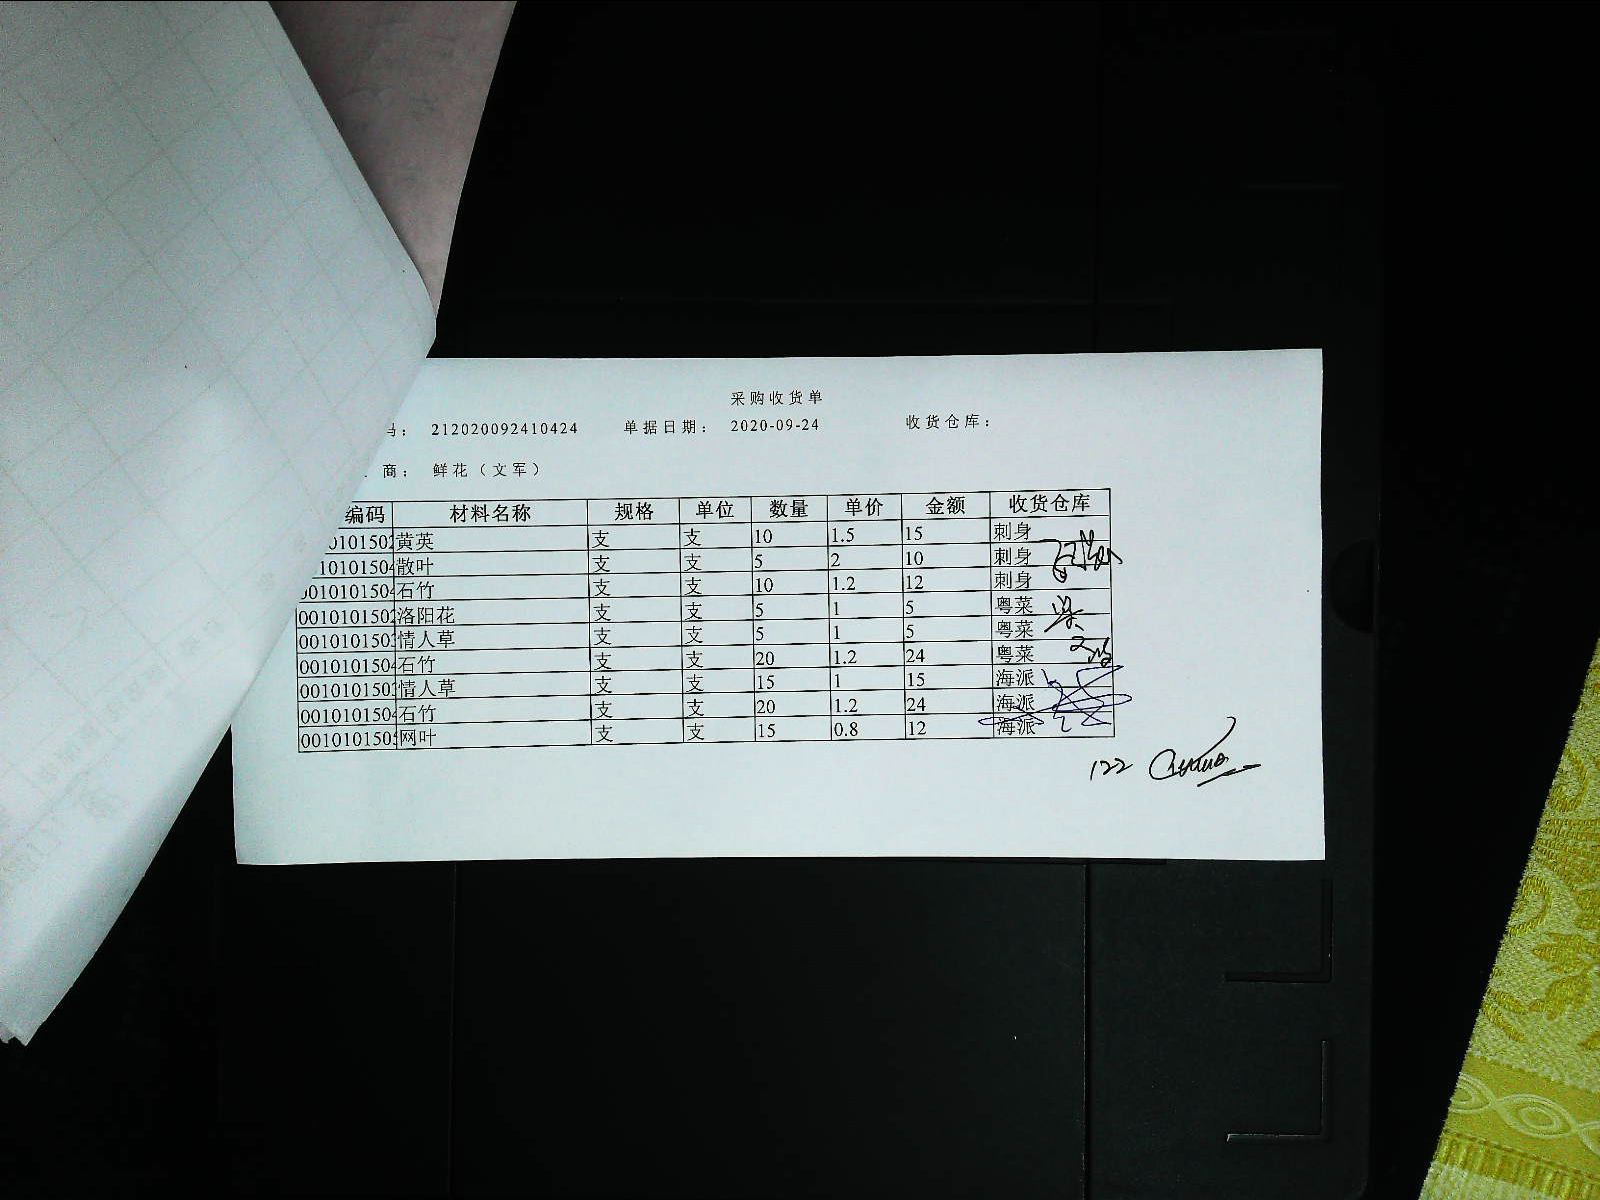 采购收货单
号： 212020092410424 单据日期： 2020-09-24 收货仓库：
商： 鲜花（文军）
编码 材料名称 规格 单位 数量 单价 金额 收货仓库
0101502 黄英 支 支 10 1.5 15 刺身
10101504 散叶 支 支 5 2 10 刺身
0010101504 石竹 支 支 10 1.2 12 刺身
0010101502 洛阳花 支 支 5 1 5 粤菜
0010101503 情人草 支 支 5 1 5 粤菜
0010101504 石竹 支 支 20 1.2 24 粤菜
0010101503 情人草 支 支 15 1 15 海派
0010101504 石竹 支 支 20 1.2 24 海派
0010101505 网叶 支 支 15 0.8 12 海派
122